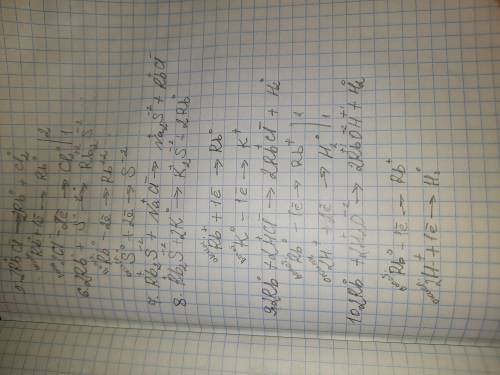 RbCl → 2Rb⁰ + Cl₂⁰
Rb⁺ + 1ē → Rb⁰ | 2
Cl⁻ - 2ē → Cl₂⁰ | 1
6. 2Rb + S → Rb₂S⁻²
Rb⁰ - 2ē → Rb⁺²
S⁰ + 2ē → S⁻²
7. Rb₂S⁻² + NaCl⁻ → Na₂S⁻² + RbCl⁻
8. Rb₂S⁻² + 2K⁰ → K₂S⁻² + 2Rb⁰
Rb⁺ + 1ē → Rb⁰
K⁰ - 1ē → K⁺
9. 2Rb⁰ + 2HCl⁻ → 2RbCl⁻ + H₂⁰
Rb⁰ - 1ē → Rb⁺ | 2
2H⁺ + 2ē → H₂⁰ | 1
10. 2Rb⁰ + 2H₂O⁻² → 2RbOH + H₂⁰
Rb⁰ - 1ē → Rb⁺
2H⁺ + 1ē → H₂